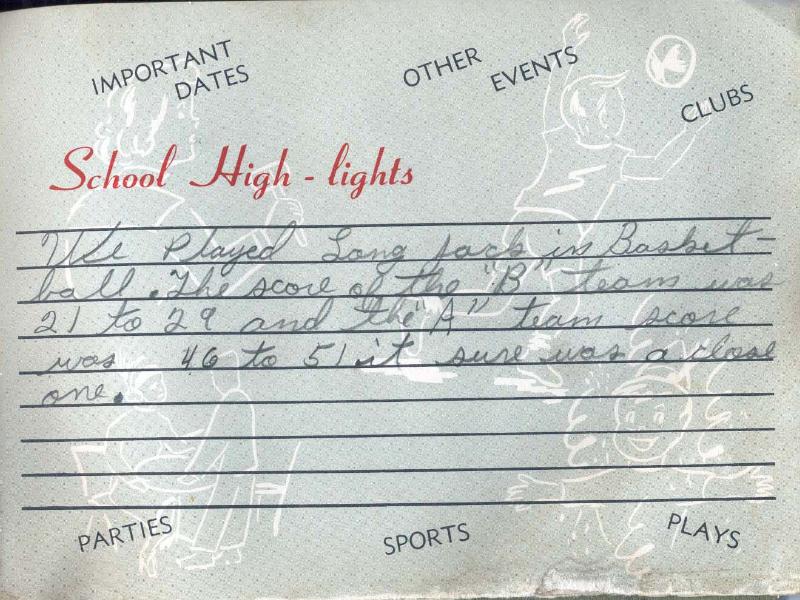 IMPORTANT
DATES
OTHER
EVENTS
CLUBS
School High-lights
We Played Long jack in Basket-
ball. The score of the "B" team was
21 to 29 and the "A" team score
was 46 to 51 it sure was a close
one.
PARTIES
SPORTS
PLAYS